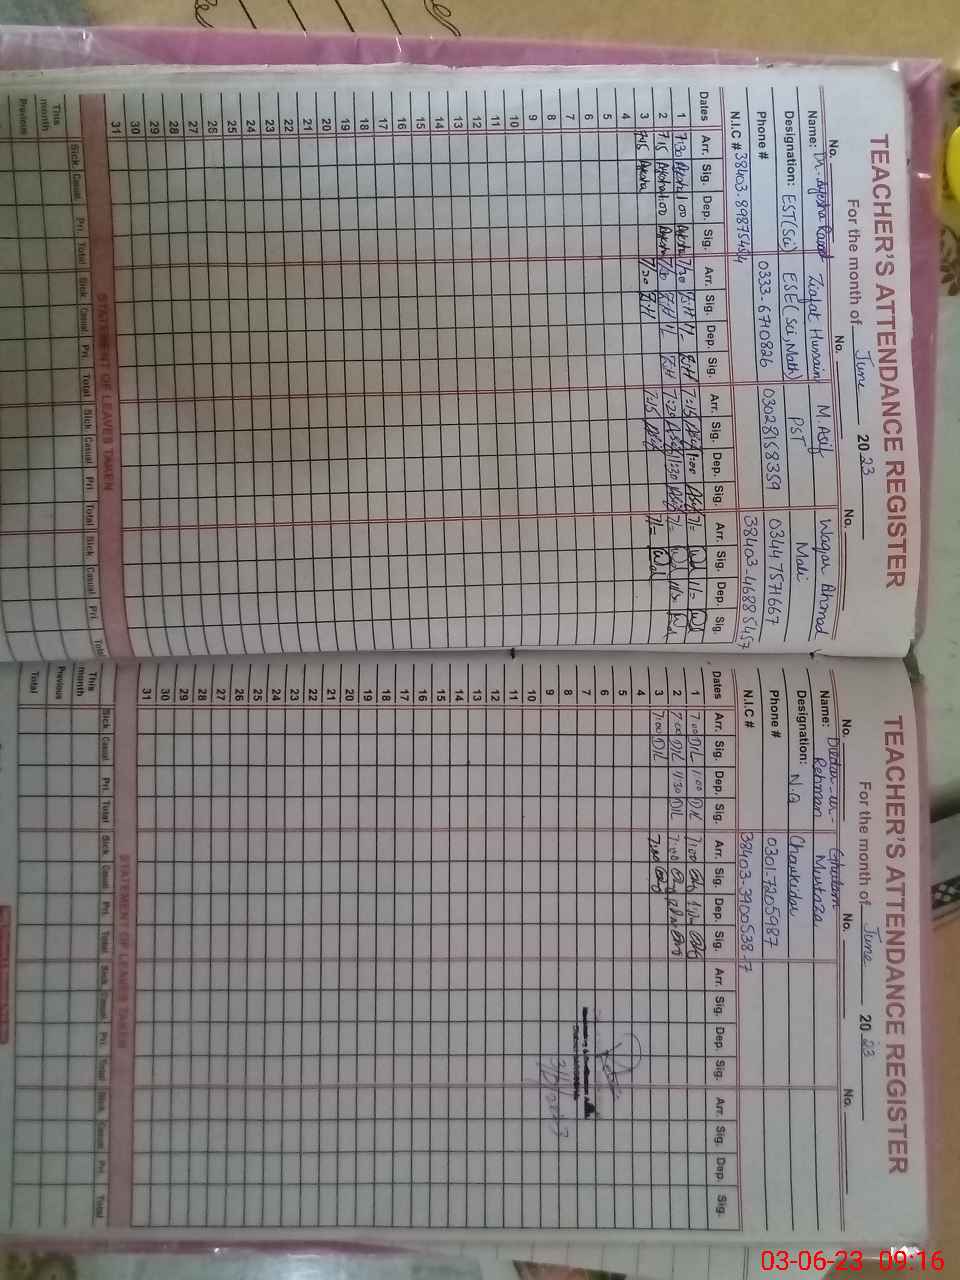 TEACHER'S ATTENDANCE REGISTER
For the month of June 2023
No. No. No.
Name: Dr. Ayesha Ziafat Hussain M. Asif Waqar Ahmad
Designation: EST(Sci) ESE(Sci, Math) PST Mali
Phone # 0333-6710826 03028158359 0344 7571667
N.I.C # 38403-4688545-7
Dates Arr. Sig. Dep. Sig. Arr. Sig. Dep. Sig. Arr. Sig. Dep. Sig. Arr. Sig. Dep. Sig.
1 7:30 Ayesha 1:00 Ayesha 7/20 Z.H 1/- Z.H 7:15 Asif 1:00 Asif 7/= 1/=
2 7:15 Ayesha 1:00 Ayesha 7/20 Z.H Z.H 7:20 Asif 1:30 Asif 7/=
3 7:15 Ayesha 7/20 Z.H 7:15 Asif 7/=
4
5
6
7
8
9
10
11
12
13
14
15
16
17
18
19
20
21
22
23
24
25
26
27
28
29
30
31
STATEMENT OF LEAVES TAKEN
Sick Casual Pri. Total Sick Casual Pri. Total Sick Casual Pri. Total Sick Casual Pri. Total
This month
Previous
TEACHER'S ATTENDANCE REGISTER
For the month of June 2023
No. No. No.
Name: Rehman Ghulam Murtaza
Designation: N.Q Chaukidar
Phone # 0301-7205987
N.I.C # 38403-3900538-7
Dates Arr. Sig. Dep. Sig. Arr. Sig. Dep. Sig. Arr. Sig. Dep. Sig. Arr. Sig. Dep. Sig.
1 7:00 DIL 1:00 DIL 7:00
2 7:00 DIL 1:30 DIL 7:00
3 7:00 DIL 7:00
4
5
6
7
8
9
10
11
12
13
14
15
16
17
18
19
20
21
22
23
24
25
26
27
28
29
30
31
STATEMENT OF LEAVES TAKEN
Sick Casual Pri. Total Sick Casual Pri. Total Sick Casual Pri. Total Sick Casual Pri. Total
This month
Previous
Total
03-06-23 09:16